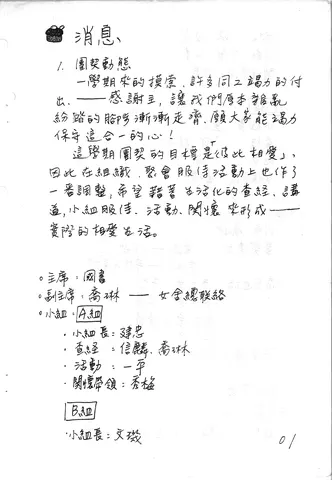 消息
1. 團契動態
一學期來的摸索，許多同工竭力的付
出，——感謝主，讓我們原本雜亂
紛踏的腳步漸漸走齊，願大家能竭力
保守這合一的心！
這學期團契的目標是「彼此相愛」，
因此在組織、聚會服侍活動上也作了
一番調整，希望藉著生活化的查經、講
道，小組服侍、活動、關懷來形成——
實際的相愛生活。
○主席：國書
○副主席：喬琳 —— 女舍總聯絡
○小組：A組
·小組長：建忠
·查經：信麟、喬琳
·活動：一平
·關懷帶領：秀梅
B組
·小組長：文
01